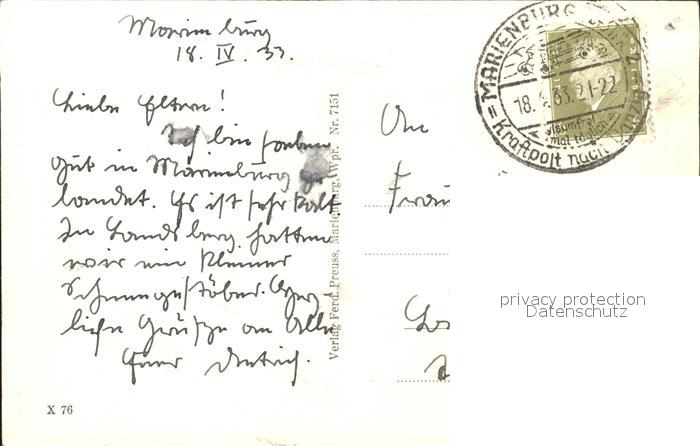 Marienburg
18. IV. 33.
Liebe Eltern!
Ich bin soeben
gut in Marienburg ge
landet. Es ist sehr kalt
In Landsberg hatten
wir ein kleines
Schneegestöber. Herz-
liche Grüße an Alle
Euer Dietrich.
Verlag Ferd. Preuss, Marienburg, Wpr. Nr. 7151
X 76
An
Frau
MARIENBURG
18. 33. 21-22
visumfrei
mal täglich
Kraftpost nach
privacy protection
Datenschutz